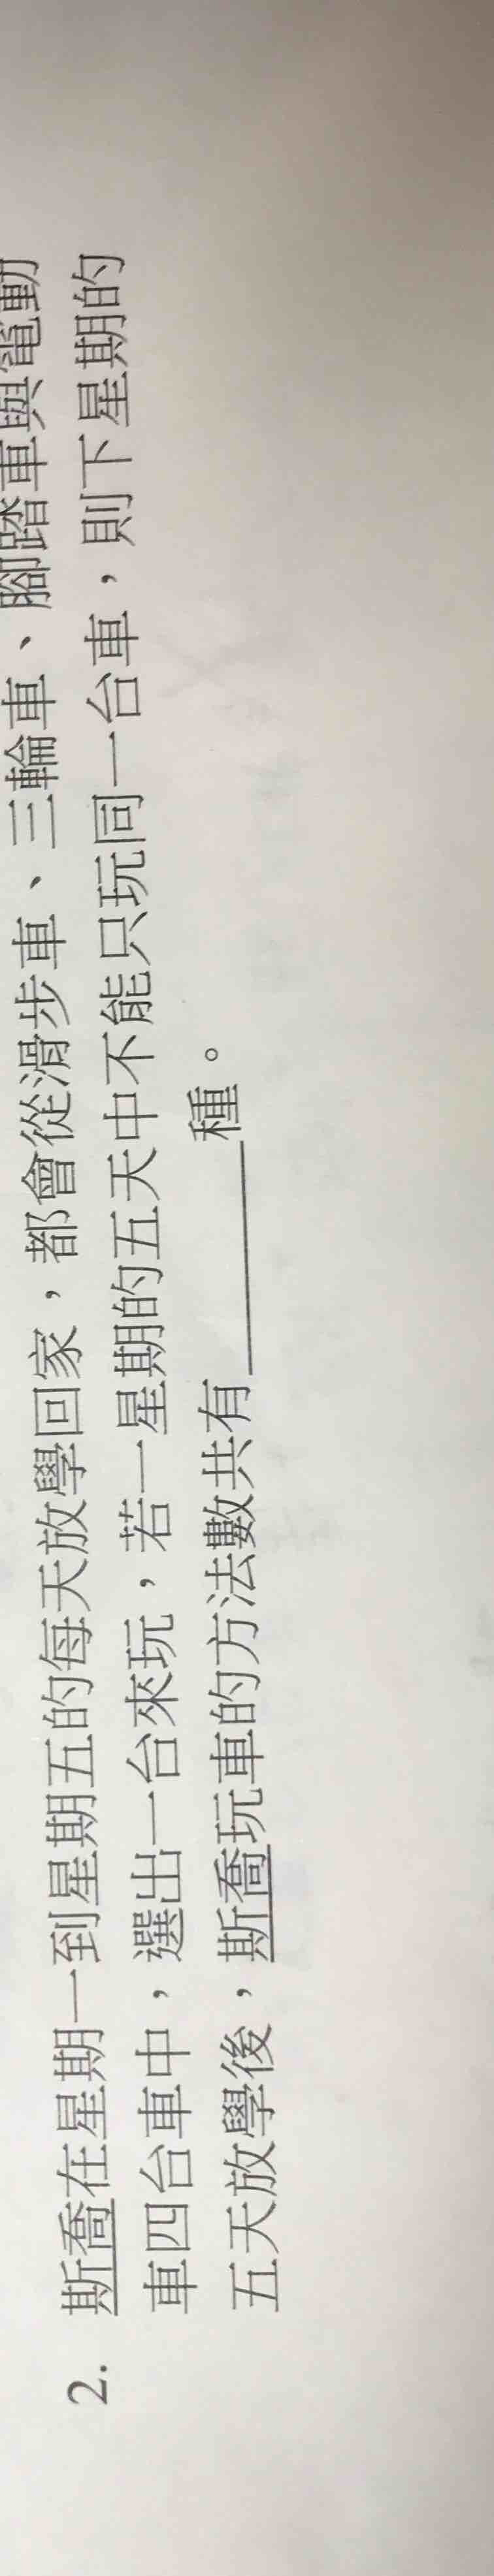 2. 斯喬在星期一到星期五的每天放學回家，都會從滑步車、三輪車、腳踏車與電動
車四台車中，選出一台來玩，若一星期的五天中不能只玩同一台車，則下星期的
五天放學後，斯喬玩車的方法數共有________種。